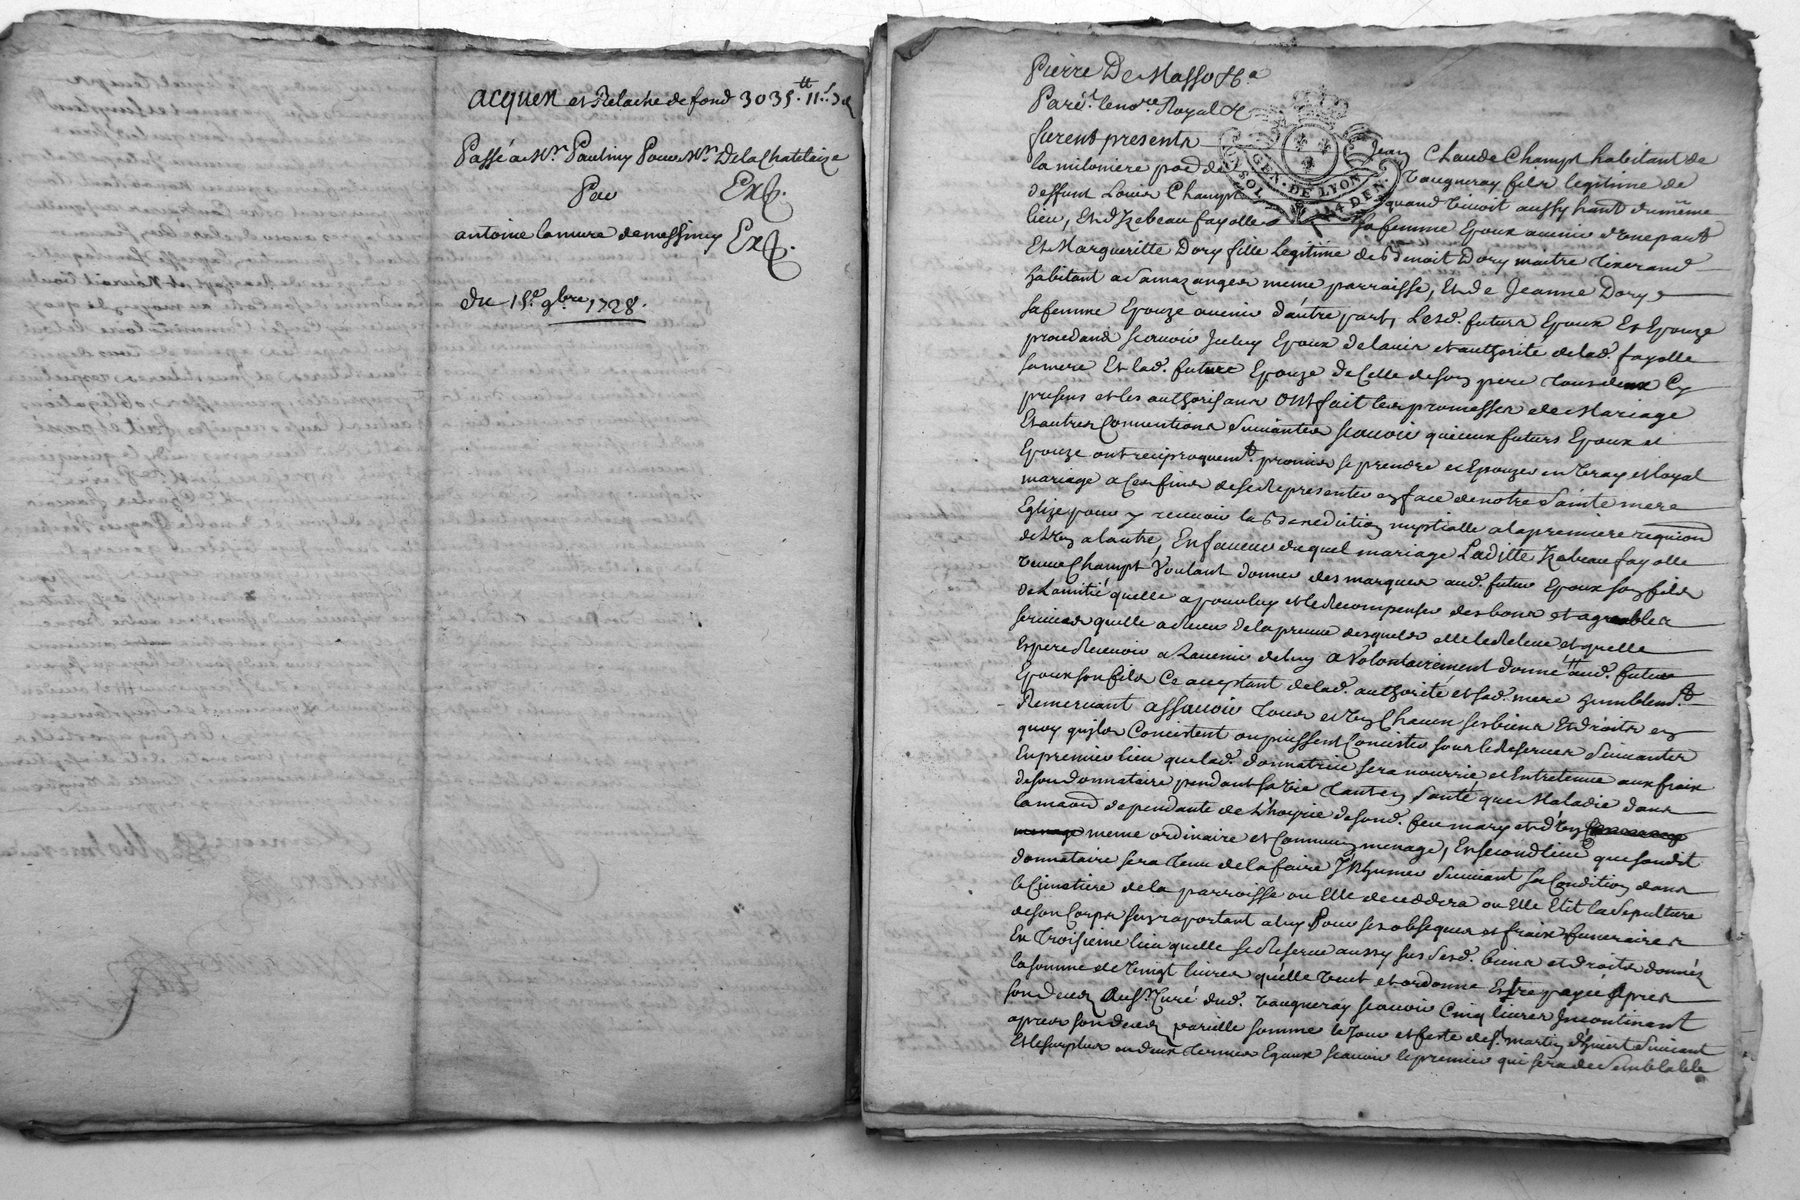 acquex et Relache de fond 3035.tt 11.s 3d
Passé a Mr. Paulmy Pour Mr. De la Chatelaize
Par Exp.
antoine lamure de messimy Exp.
du 15e. 9bre 1728.
Pierre De Masso &a
Pardt. lenore Royal &
furent presents Jean Claude Champt habitant de
GEN. DE LYON
UN SOL 4 DEN.
la milonière paod de Vaugneray fils legitime de
deffunt Louis Champt quand vivoit aussy hant du même
lieu, Et d'Izabeau fayolle sa femme Epoux avenir d'une part
Et Margueritte Dory fille Legitime de Benoit Dory maitre tixerand
habitant a Lamazanger meme parroisse, Et de Jeanne Dory
sa femme Epouze avenir d'autre part, Lesd. futurs Epoux Et Epouze
procedans scavoir Iceluy Epoux de lavis et authorité de lad. fayolle
sa mere Et lad. future Epouze de Celle de son pere tous deux Cy
presens et les authorisans ont fait les promesses de Mariage
Et autres Conventions suivantes scavoir que eux futurs Epoux et
Epouze ont reciproquemt. promis se prendre et Epouzer en vray et loyal
mariage a Ces fins de se Representer en face de notre sainte mere
Eglize pour y recevoir la Benediction nuptialle a la premiere requion
de L'un a lautre, En faveur duquel mariage Laditte Izabeau fayolle
veuve Champt Voulant donner des marques aud. futur Epoux son fils
de Lamitié quelle a pour luy et le Recompenser des bons et agreables
services quelle a Receu de la preuve desquels elle le Releve et quelle
Espere Recevoir a Lavenir de luy a Volontairement donné aud. futur
Epoux son fils Ce acceptant de lad. authorité et sad. mere humblemt.
Remerciant assavoir tous et un Chacun ses biens Et droits en
quoy qu'ils Concistent ou puissent Concister sous les Reserves suivantes
En premier lieu que lad. donnatrice sera nourrie et Entretenue aux fraix
de son donnataire pendant sa vie tant en santé que Maladie dans
la maon dependante de L'hoyrie de son d. feu mary et d'un
meme ordinaire et Commun menage, En second lieu que sondit
donnataire sera tenu de la faire Inhumer suivant sa Condition dans
le Cimetiere de la parroisse ou Elle decedera ou Elle Elit la sepulture
de son Corps s'en raportant a luy Pour ses obseques et fraix funeraires
En troisieme lieu quelle se Reserve aussy sur sesd. biens et droits donnés
la somme de vingt livres qu'elle veut et ordonne Estre payée apres
son deces au Sr. Curé dud. Vaugneray scavoir Cinq livres Incontinant
apres son deces pareille somme le Jour et feste de St. martin d'hivert suivant
Et le surplus en deux termes Egaux scavoir le premier qui sera de semblable